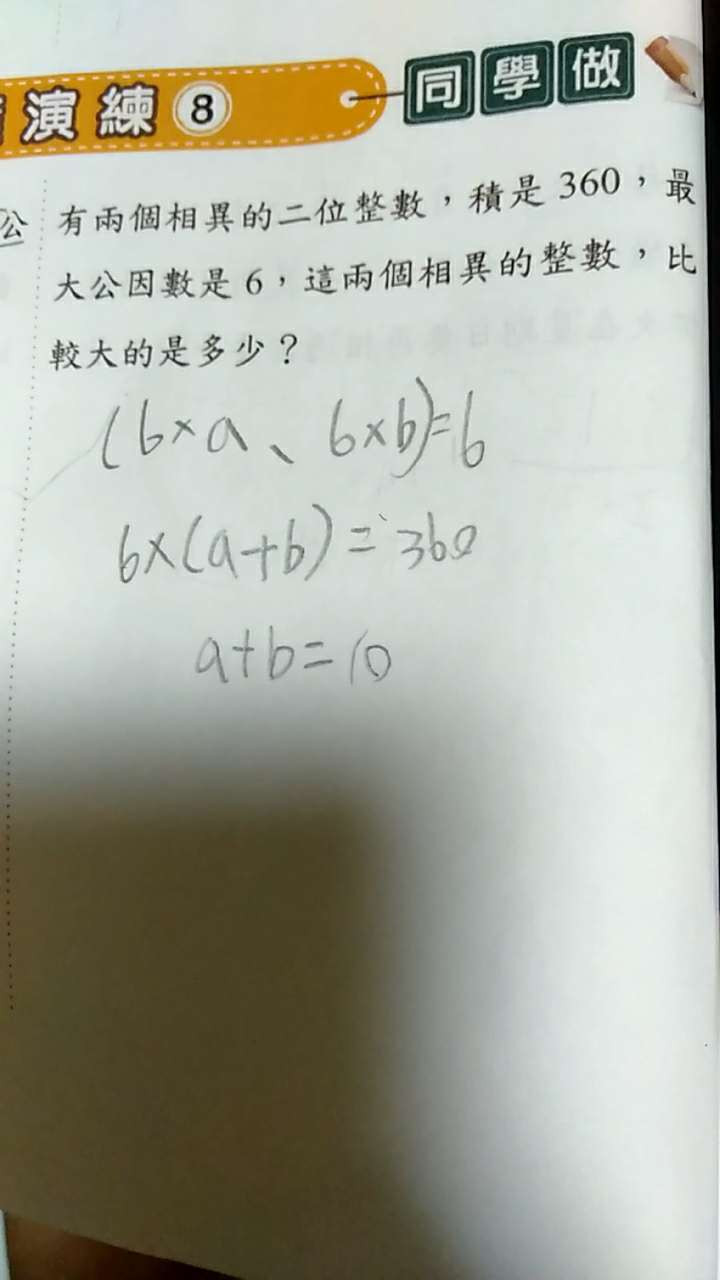 演練 8 同學做
公
有兩個相異的二位整數，積是 360，最
大公因數是 6，這兩個相異的整數，比
較大的是多少？
(6×a、6×b)=6
6×(a+b)=360
a+b=10